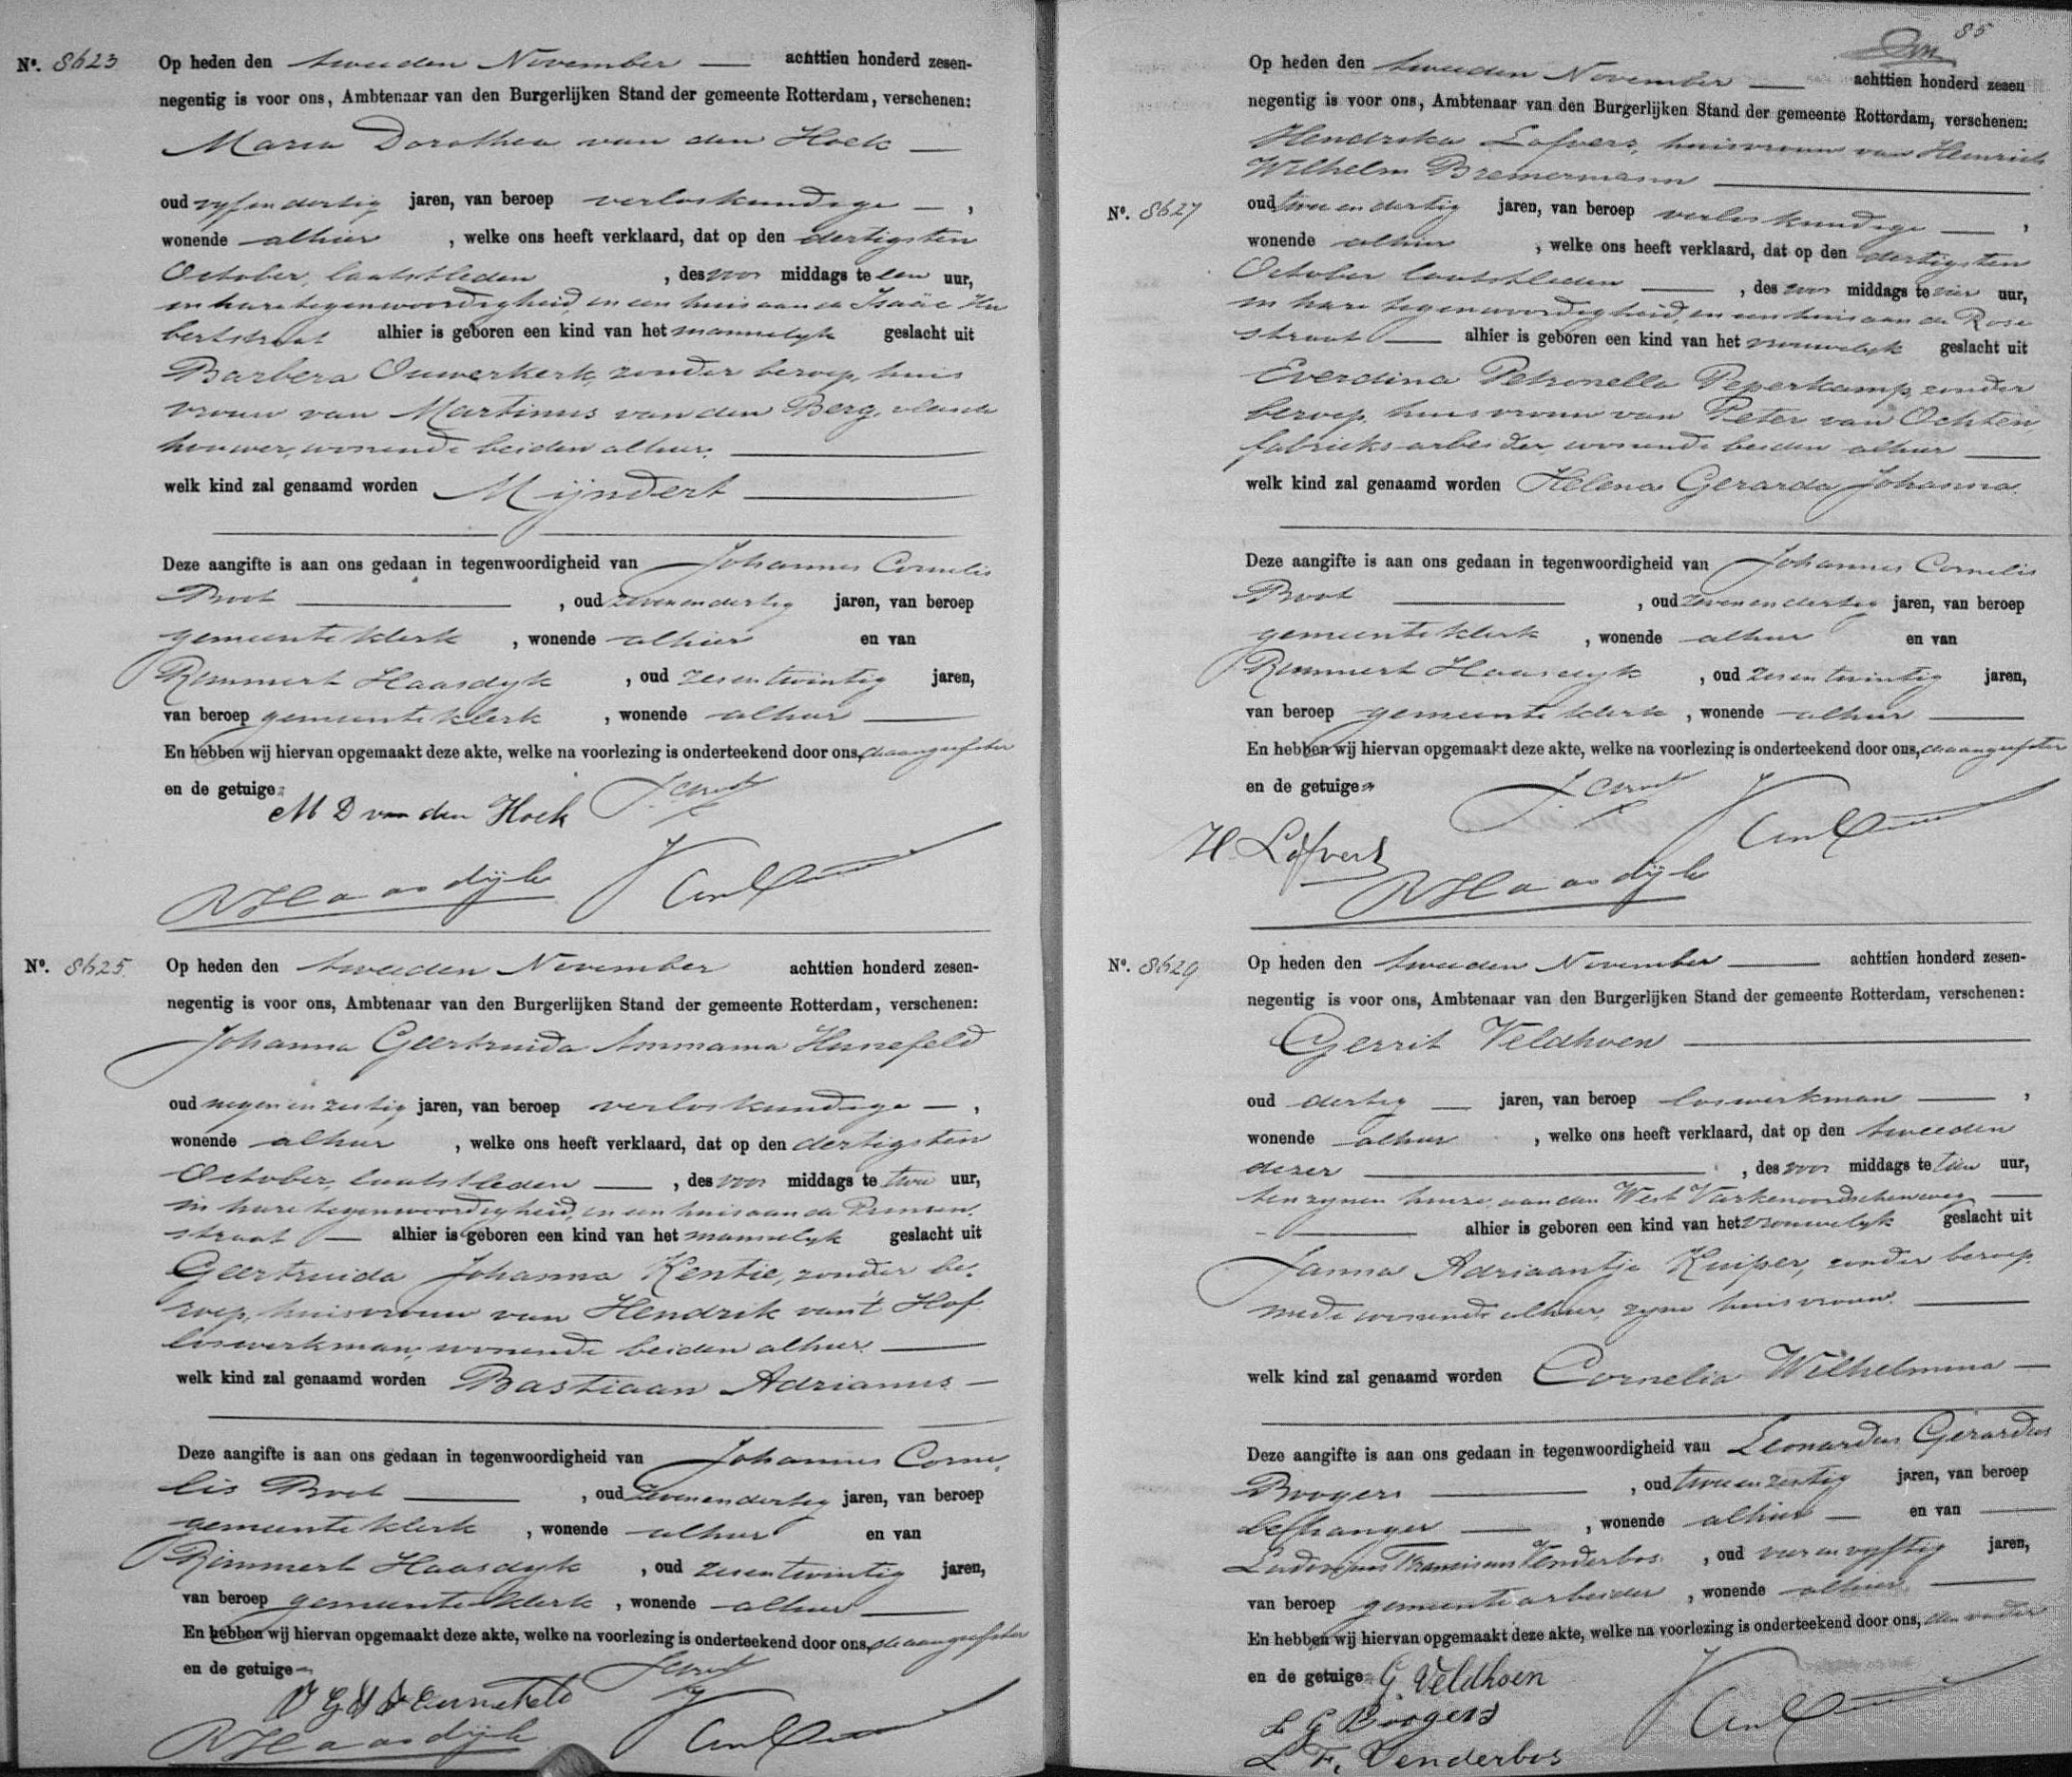 Nº. 8623 Op heden den tweeden November achttien honderd zesen-
negentig is voor ons, Ambtenaar van den Burgerlijken Stand der gemeente Rotterdam, verschenen:
Maria Dorothea van den Hoek
oud vyfendertig jaren, van beroep verloskundige,
wonende alhier, welke ons heeft verklaard, dat op den dertigsten
October, laatstleden, des voor middags te een uur,
in hare tegenwoordigheid, in een huis aan de Isaäc Hu
bertstraat alhier is geboren een kind van het mannelyk geslacht uit
Barbera Ouwerkerk, zonder beroep, huis
vrouw van Martinus van den Berg, vleesch
houwer, wonende beiden alhier.
welk kind zal genaamd worden Mijndert
Deze aangifte is aan ons gedaan in tegenwoordigheid van Johannes Cornelis
Boot, oud zevenendertig jaren, van beroep
gemeenteklerk, wonende alhier en van
Remmert Haasdyk, oud zesentwintig jaren,
van beroep gemeenteklerk, wonende alhier
En hebben wij hiervan opgemaakt deze akte, welke na voorlezing is onderteekend door ons, de aangeefster
en de getuigen
M D van den Hoek
R Haasdijk
Nº. 8625. Op heden den tweeden November achttien honderd zesen-
negentig is voor ons, Ambtenaar van den Burgerlijken Stand der gemeente Rotterdam, verschenen:
Johanna Geertruida Hunefeld
oud negenenzestig jaren, van beroep verloskundige,
wonende alhier, welke ons heeft verklaard, dat op den dertigsten
October, laatstleden, des voor middags te twee uur,
in hare tegenwoordigheid, in een huis aan de Prinsen-
straat alhier is geboren een kind van het mannelyk geslacht uit
Geertruida Johanna Kentie, zonder be-
roep, huisvrouw van Hendrik van 't Hof
loswerkman, wonende beiden alhier.
welk kind zal genaamd worden Bastiaan Adrianus
Deze aangifte is aan ons gedaan in tegenwoordigheid van Johannes Corne-
lis Boot, oud zevenendertig jaren, van beroep
gemeenteklerk, wonende alhier en van
Remmert Haasdyk, oud zesentwintig jaren,
van beroep gemeenteklerk, wonende alhier
En hebben wij hiervan opgemaakt deze akte, welke na voorlezing is onderteekend door ons, de aangeefster
en de getuigen
R Haasdijk
85
Op heden den tweeden November achttien honderd zesen
negentig is voor ons, Ambtenaar van den Burgerlijken Stand der gemeente Rotterdam, verschenen:
Hendrika Löfvers, huisvrouw van Heinrich
Wilhelm Bremermann
Nº. 8627 oud twee en dertig jaren, van beroep verloskundige,
wonende alhier, welke ons heeft verklaard, dat op den dertigsten
October laatstleden, des voor middags te vier uur,
in hare tegenwoordigheid, in een huis aan de Rose
straat alhier is geboren een kind van het vrouwelyk geslacht uit
Everdina Petronella Peperkamp, zonder
beroep, huisvrouw van Peter van Ochten,
fabrieks arbeider, wonende beiden alhier
welk kind zal genaamd worden Helena Gerarda Johanna.
Deze aangifte is aan ons gedaan in tegenwoordigheid van Johannes Cornelis
Boot, oud zevenendertig jaren, van beroep
gemeenteklerk, wonende alhier en van
Remmert Haasdyk, oud zesentwintig jaren,
van beroep gemeenteklerk, wonende alhier
En hebben wij hiervan opgemaakt deze akte, welke na voorlezing is onderteekend door ons, de aangeefster
en de getuigen
H. Löfvers
R Haasdijk
Nº. 8629 Op heden den tweeden November achttien honderd zesen-
negentig is voor ons, Ambtenaar van den Burgerlijken Stand der gemeente Rotterdam, verschenen:
Gerrit Veldhoen
oud dertig jaren, van beroep loswerkman,
wonende alhier, welke ons heeft verklaard, dat op den tweeden
dezer, des voor middags te tien uur,
ten zynen huize, aan den West Varkenoordschenweg
alhier is geboren een kind van het vrouwelyk geslacht uit
Janna Adriaantje Kuiper, zonder beroep
mede wonende alhier, zyne huisvrouw.
welk kind zal genaamd worden Cornelia Wilhelmina
Deze aangifte is aan ons gedaan in tegenwoordigheid van Leonardus Gerardus
Boogers, oud tweeenzestig jaren, van beroep
behanger, wonende alhier en van
Ludovicus Franciscus Venderbos, oud vierenvyftig jaren,
van beroep gemeentearbeider, wonende alhier
En hebben wij hiervan opgemaakt deze akte, welke na voorlezing is onderteekend door ons, den vader
en de getuigen G Veldhoen
L G Boogers
L F. Venderbos